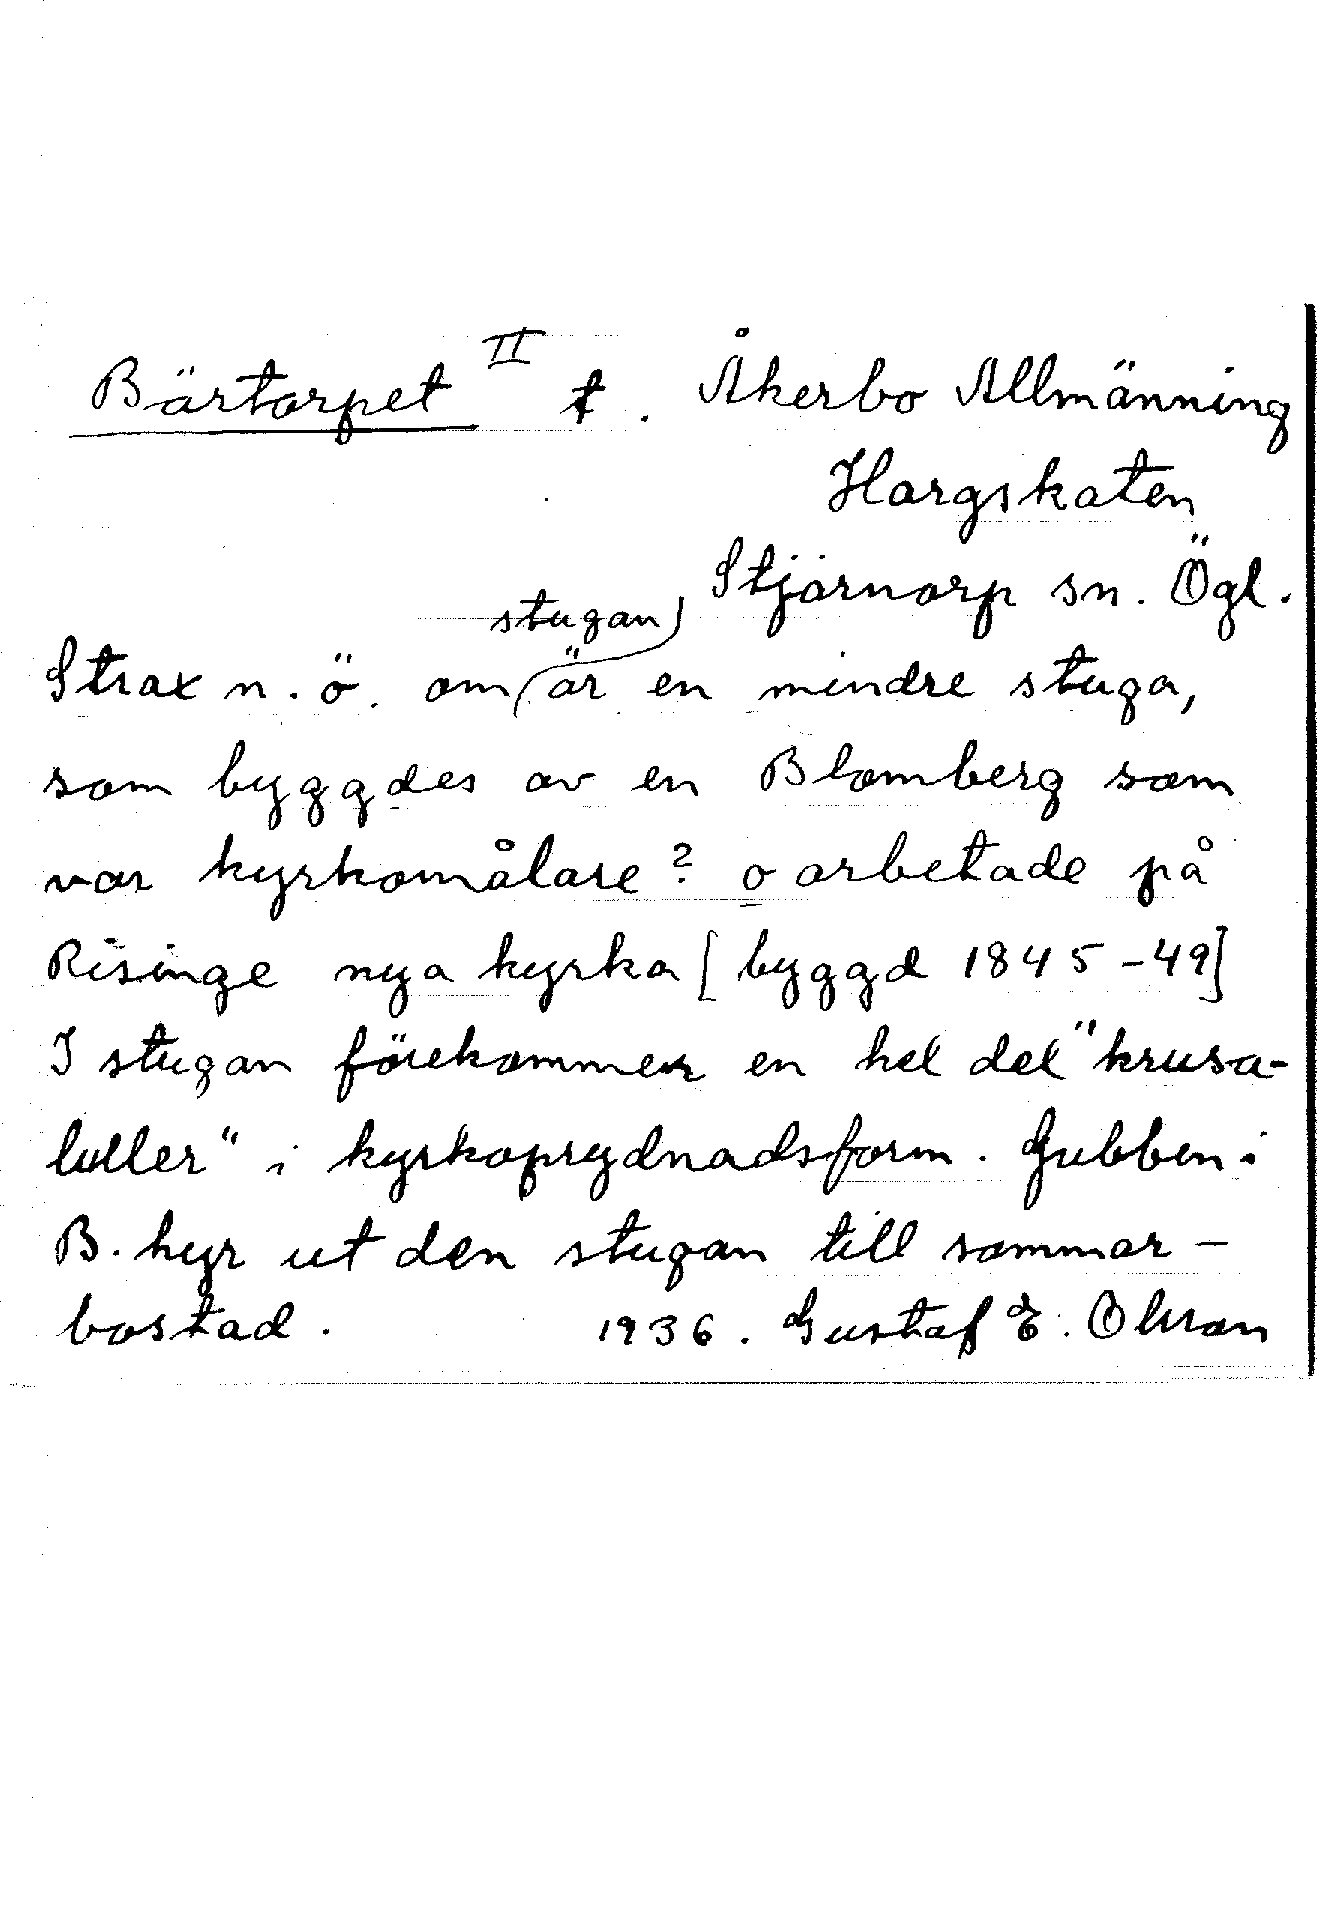 Bärtorpet II t. Åkerbo Allmänning
Hargskaten
Stjärnorp sn. Ögl.
stugan
Strax n.ö. om är en mindre stuga,
som byggdes av en Blomberg som
var kyrkomålare? o arbetade på
Risinge nya kyrka [byggd 1845-49]
I stugan förekommer en hel del "krusa-
luller" i kyrkoprydnadsform. Gubben i
B. hyr ut den stugan till sommar-
bostad. 1936. Gustaf E. Olsson